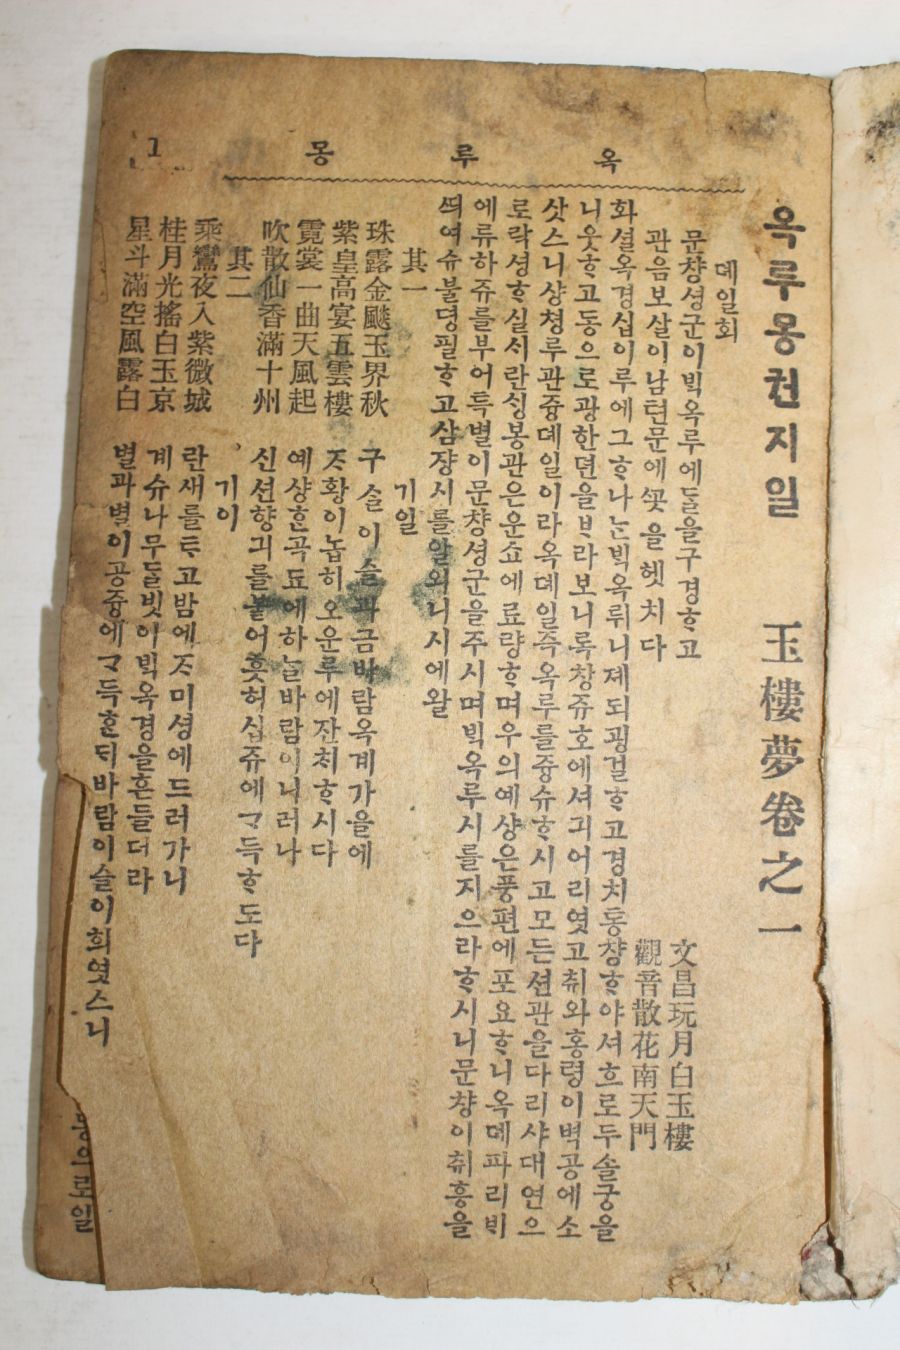 옥루몽
1
옥루몽천지일 玉樓夢卷之一
뎨일회
문챵셩군이ᄇᆡᆨ옥루에ᄃᆞᆯ을구경ᄒᆞ고 文昌玩月白玉樓
관음보살이남텬문에ᄭᅩᆺ을헷치다 觀音散花南天門
화셜옥경십이루에그ᄒᆞ나ᄂᆞᆫᄇᆡᆨ옥뤼니졔되굉걸ᄒᆞ고경치통챵ᄒᆞ야셔흐로두솔궁을
니웃ᄒᆞ고동으로광한뎐을ᄇᆞ라보니록창쥬호에셔긔어리엿고취와홍령이벽공에소
삿스니샹쳥루관즁뎨일이라옥뎨일즉옥루를즁슈ᄒᆞ시고모든션관을다리샤대연으
로락셩ᄒᆞ실ᄉᆡ란ᄉᆡᆼ봉관은운쇼에료량ᄒᆞ며우의예샹은풍편에포요ᄒᆞ니옥뎨파리ᄇᆡ
에류하쥬를부어특별이문챵셩군을주시며ᄇᆡᆨ옥루시를지으라ᄒᆞ시니문챵이취흥을
ᄯᅴ여슈불뎡필ᄒᆞ고삼쟝시를알외니시에왈
其一 기일
珠露金颷玉界秋 구슬이슬과금바람옥계가을에
紫皇高宴五雲樓 ᄌᆞ황이놉히오운루에잔ᄎᆡᄒᆞ시다
霓裳一曲天風起 예샹ᄒᆞᆫ곡됴에하ᄂᆞᆯ바람이니러나
吹散仙香滿十州 신션향긔를불어훗허십쥬에ᄀᆞ득ᄒᆞ도다
其二 기이
乘鸞夜入紫微城 란새를ᄐᆞ고밤에ᄌᆞ미셩에드러가니
桂月光搖白玉京 계슈나무ᄃᆞᆯ빗이ᄇᆡᆨ옥경을흔들더라
星斗滿空風露白 별과별이공즁에ᄀᆞ득ᄒᆞᆫᄃᆡ바람이슬이희엿스니
으로일